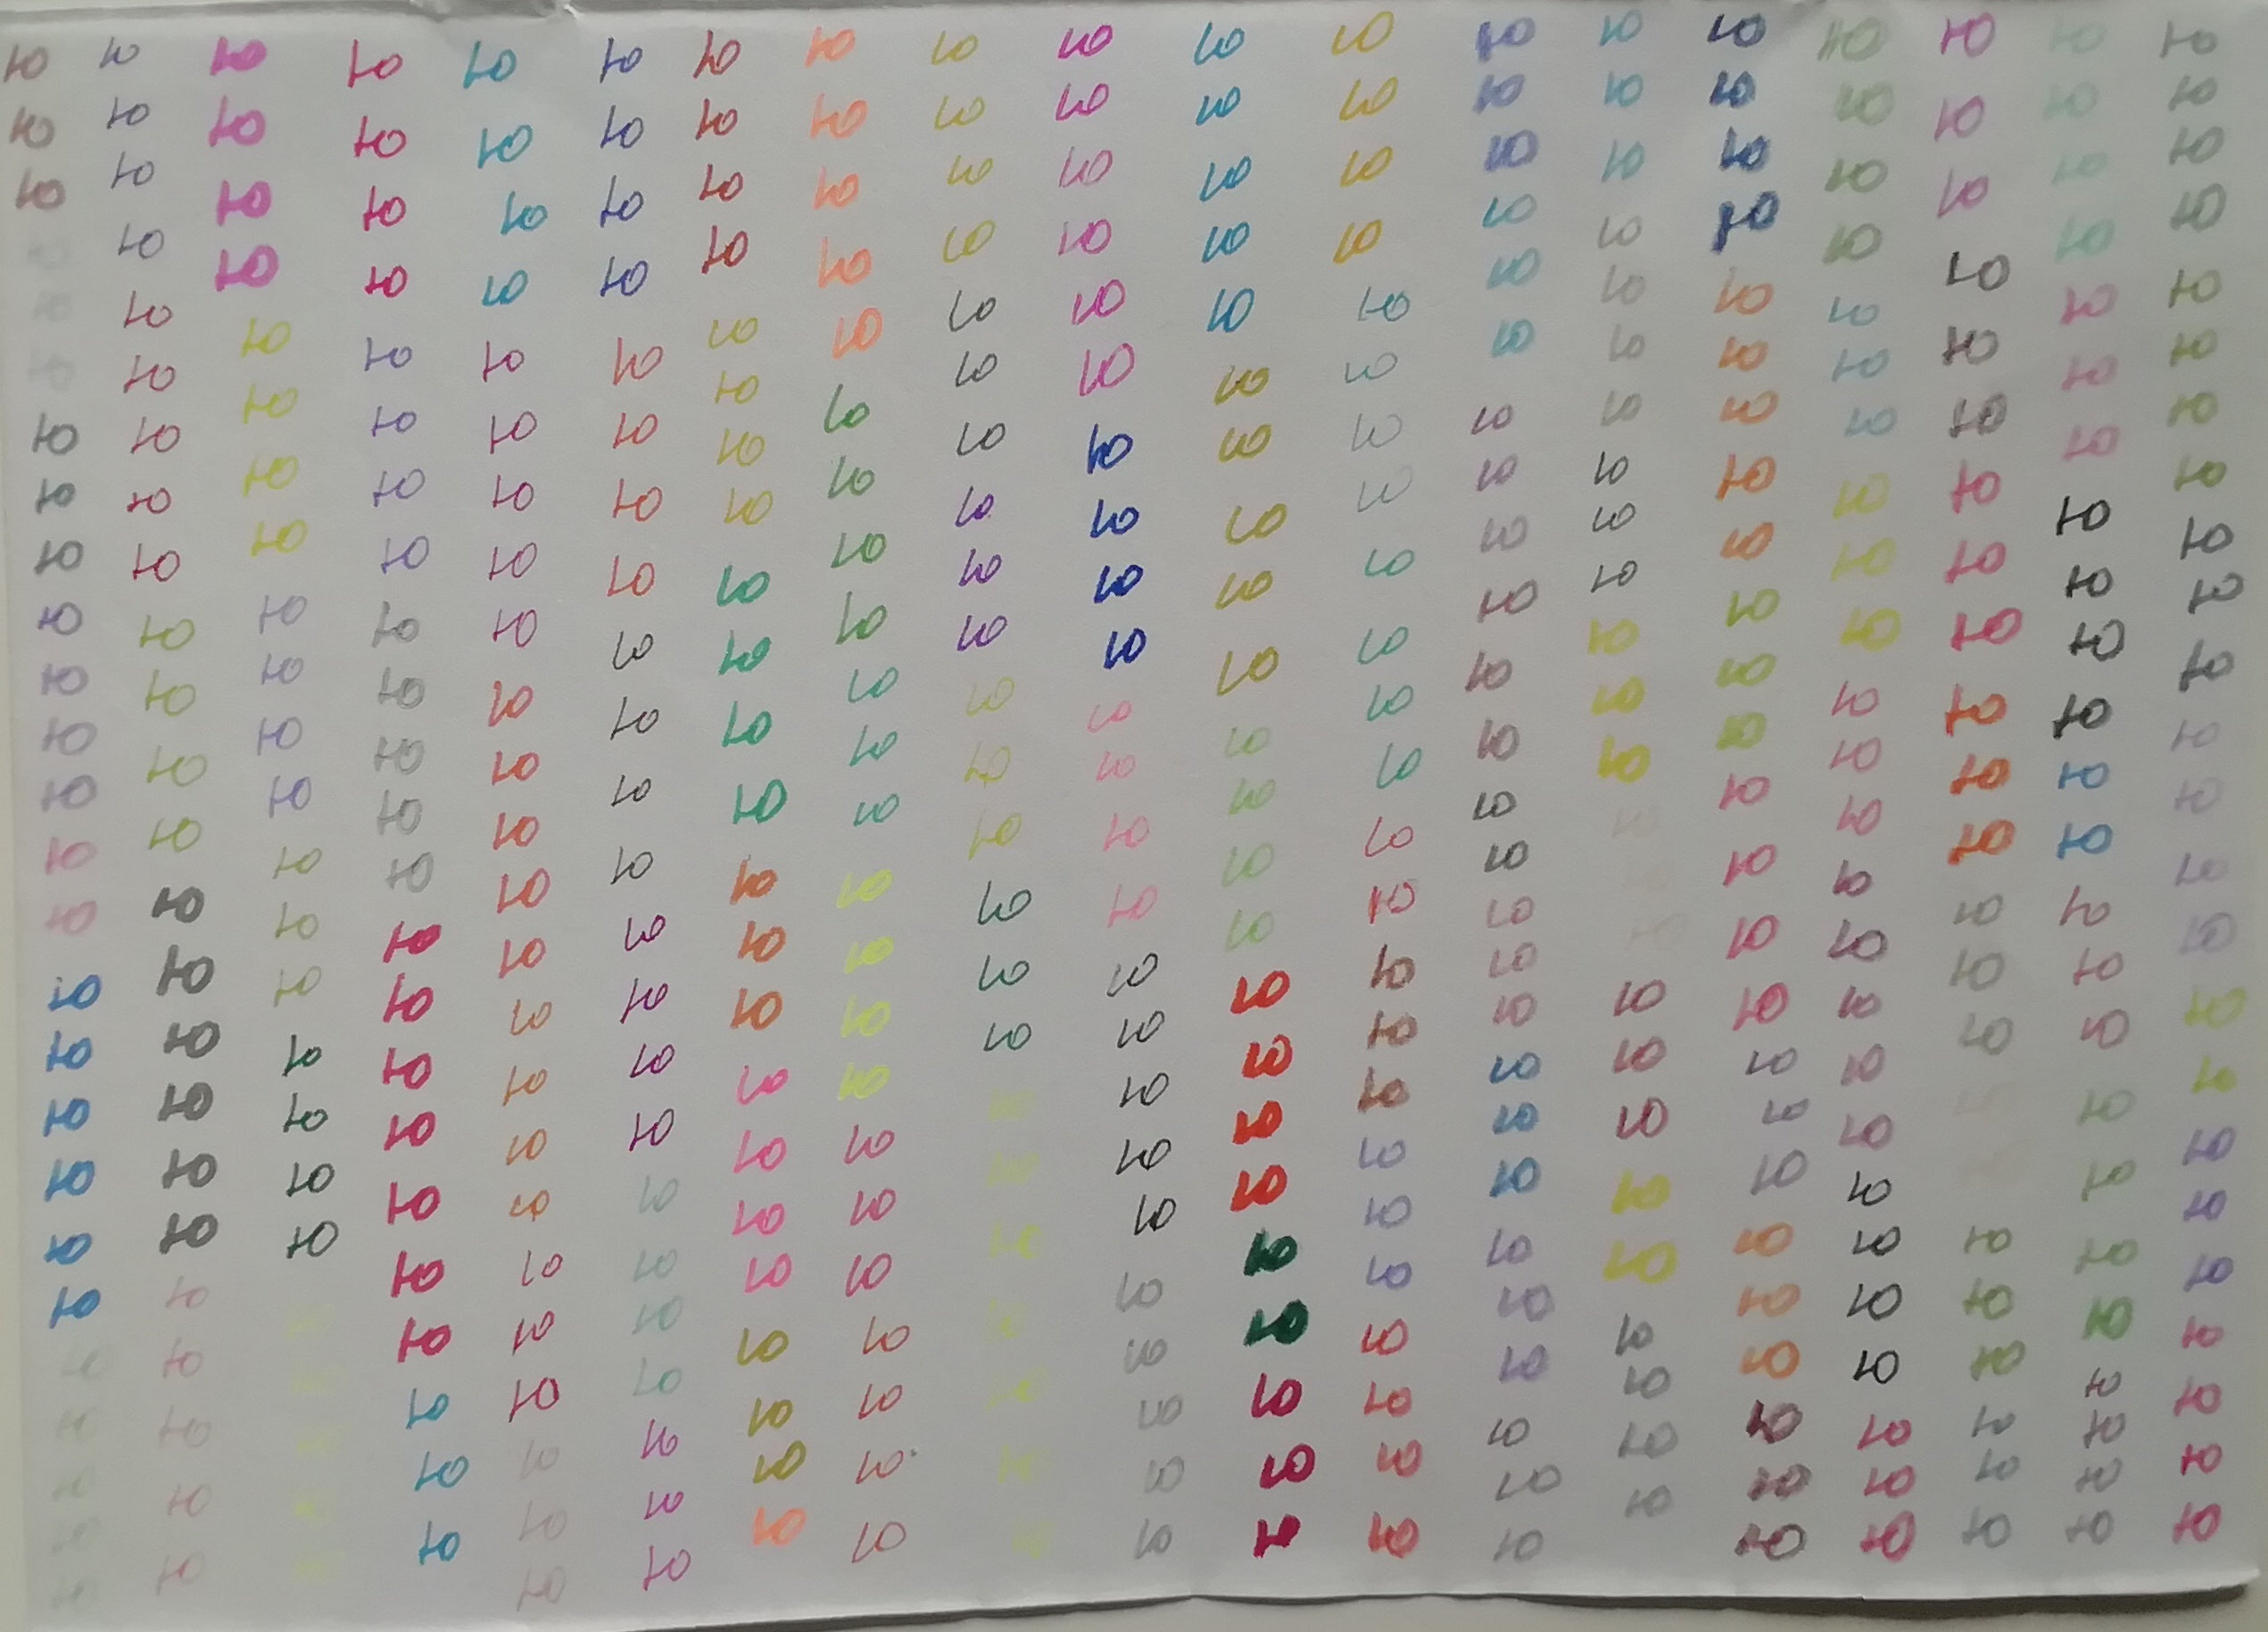 ю ю ю ю ю ю ю ю ю ю ю ю ю ю ю ю ю ю ю
ю ю ю ю ю ю ю ю ю ю ю ю ю ю ю ю ю ю ю
ю ю ю ю ю ю ю ю ю ю ю ю ю ю ю ю ю ю ю
ю ю ю ю ю ю ю ю ю ю ю ю ю ю ю ю ю ю ю
ю ю ю ю ю ю ю ю ю ю ю ю ю ю ю ю ю ю ю
ю ю ю ю ю ю ю ю ю ю ю ю ю ю ю ю ю ю ю
ю ю ю ю ю ю ю ю ю ю ю ю ю ю ю ю ю ю ю
ю ю ю ю ю ю ю ю ю ю ю ю ю ю ю ю ю ю ю
ю ю ю ю ю ю ю ю ю ю ю ю ю ю ю ю ю ю ю
ю ю ю ю ю ю ю ю ю ю ю ю ю ю ю ю ю ю ю
ю ю ю ю ю ю ю ю ю ю ю ю ю ю ю ю ю ю ю
ю ю ю ю ю ю ю ю ю ю ю ю ю ю ю ю ю ю ю
ю ю ю ю ю ю ю ю ю ю ю ю ю ю ю ю ю ю ю
ю ю ю ю ю ю ю ю ю ю ю ю ю ю ю ю ю ю ю
ю ю ю ю ю ю ю ю ю ю ю ю ю ю ю ю ю ю ю
ю ю ю ю ю ю ю ю ю ю ю ю ю ю ю ю ю ю ю
ю ю ю ю ю ю ю ю ю ю ю ю ю ю ю ю ю ю ю
ю ю ю ю ю ю ю ю ю ю ю ю ю ю ю ю ю ю ю
ю ю ю ю ю ю ю ю ю ю ю ю ю ю ю ю ю ю ю
ю ю ю ю ю ю ю ю ю ю ю ю ю ю ю ю ю ю ю
ю ю ю ю ю ю ю ю ю ю ю ю ю ю ю ю ю ю ю
ю ю ю ю ю ю ю ю ю ю ю ю ю ю ю ю ю ю ю
ю ю ю ю ю ю ю ю ю ю ю ю ю ю ю ю ю ю ю